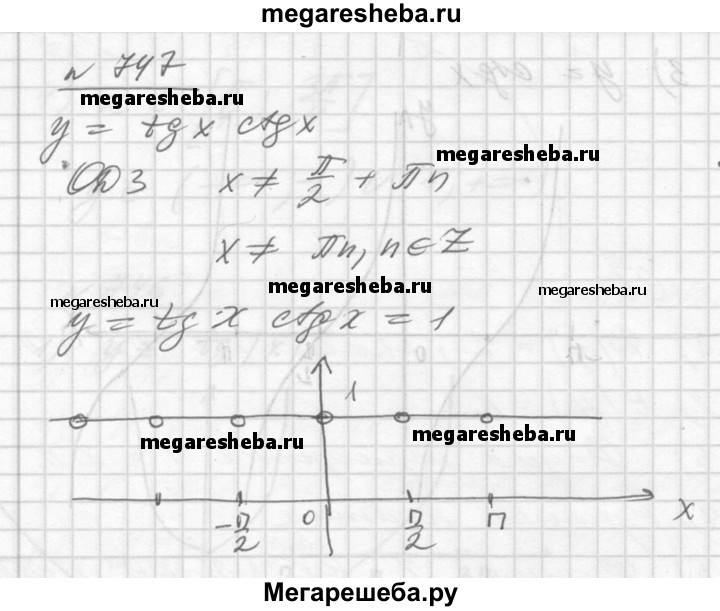 megaresheba.ru
n 747
3) y = ctgx
megaresheba.ru
y = tg x ctgx
megaresheba.ru
ОДЗ x ≠ π/2 + πn
x ≠ πn, n ∈ Z
megaresheba.ru
megaresheba.ru
megaresheba.ru
y = tg x ctg x = 1
1
megaresheba.ru
megaresheba.ru
-π/2 0 π/2 π x
Мегарешеба.ру